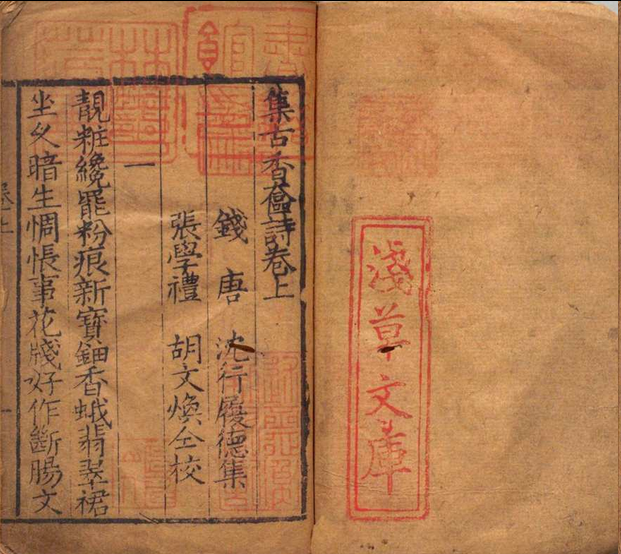 淺草文庫
集古香奩詩卷上
錢唐 沈行履德集
張學禮 胡文煥仝校
一
靚粧纔罷粉痕新寶鈿香蛾翡翠裙
坐久暗生惆悵事花牋好作斷腸文
卷上 一